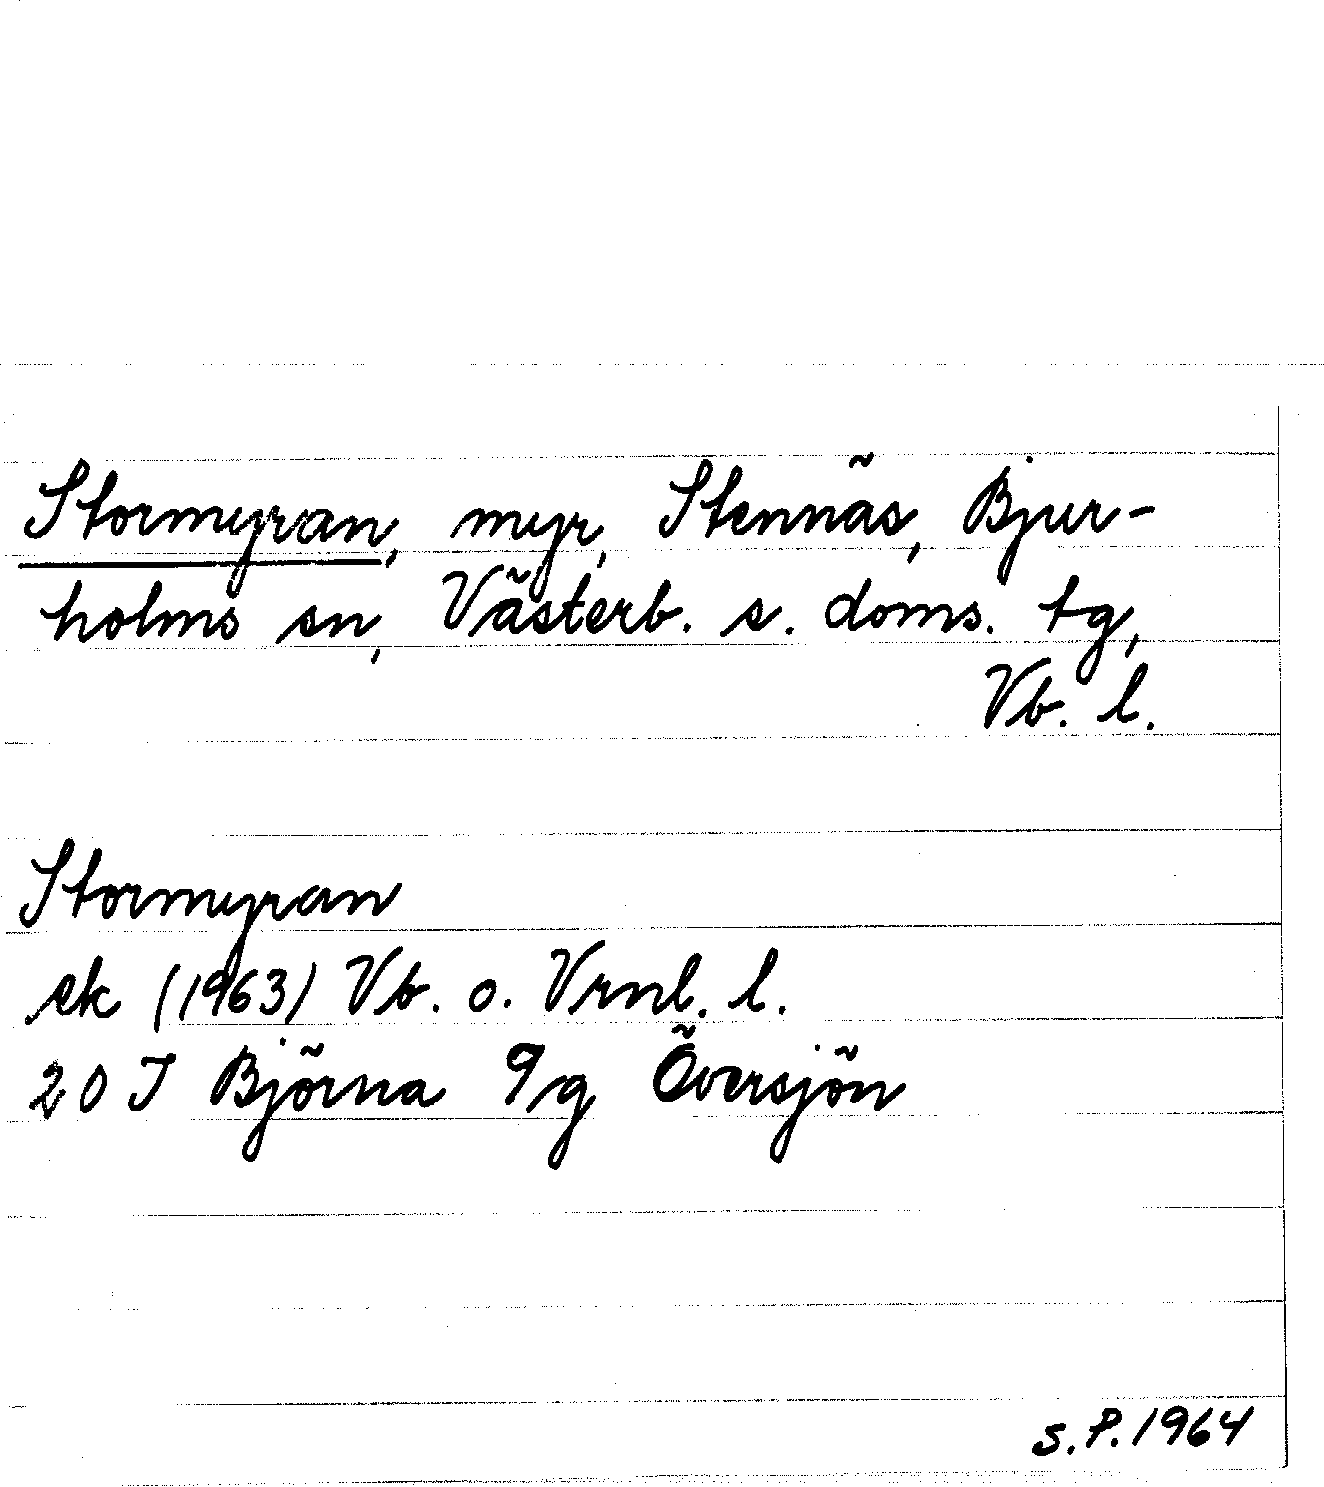 Stormyran, myr, Stennäs, Bjur-
holms sn, Västerb. s. doms. tg,
Vb. l.
Stormyran
ek (1963) Vb. o. Vrnl. l.
20 J Björna 9g Översjön
S.P. 1964